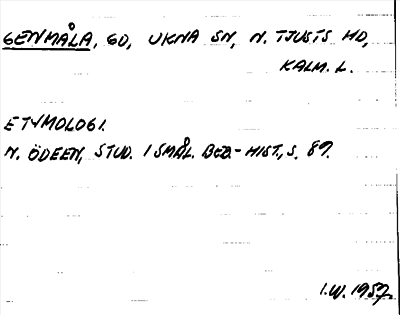 GENMÅLA, GD, UKNA SN, N. TJUSTS HD,
KALM. L.
ETYMOLOGI.
N. ÖDEEN, STUD. I SMÅL. BEB.-HIST., S. 89.
I.W. 1957.